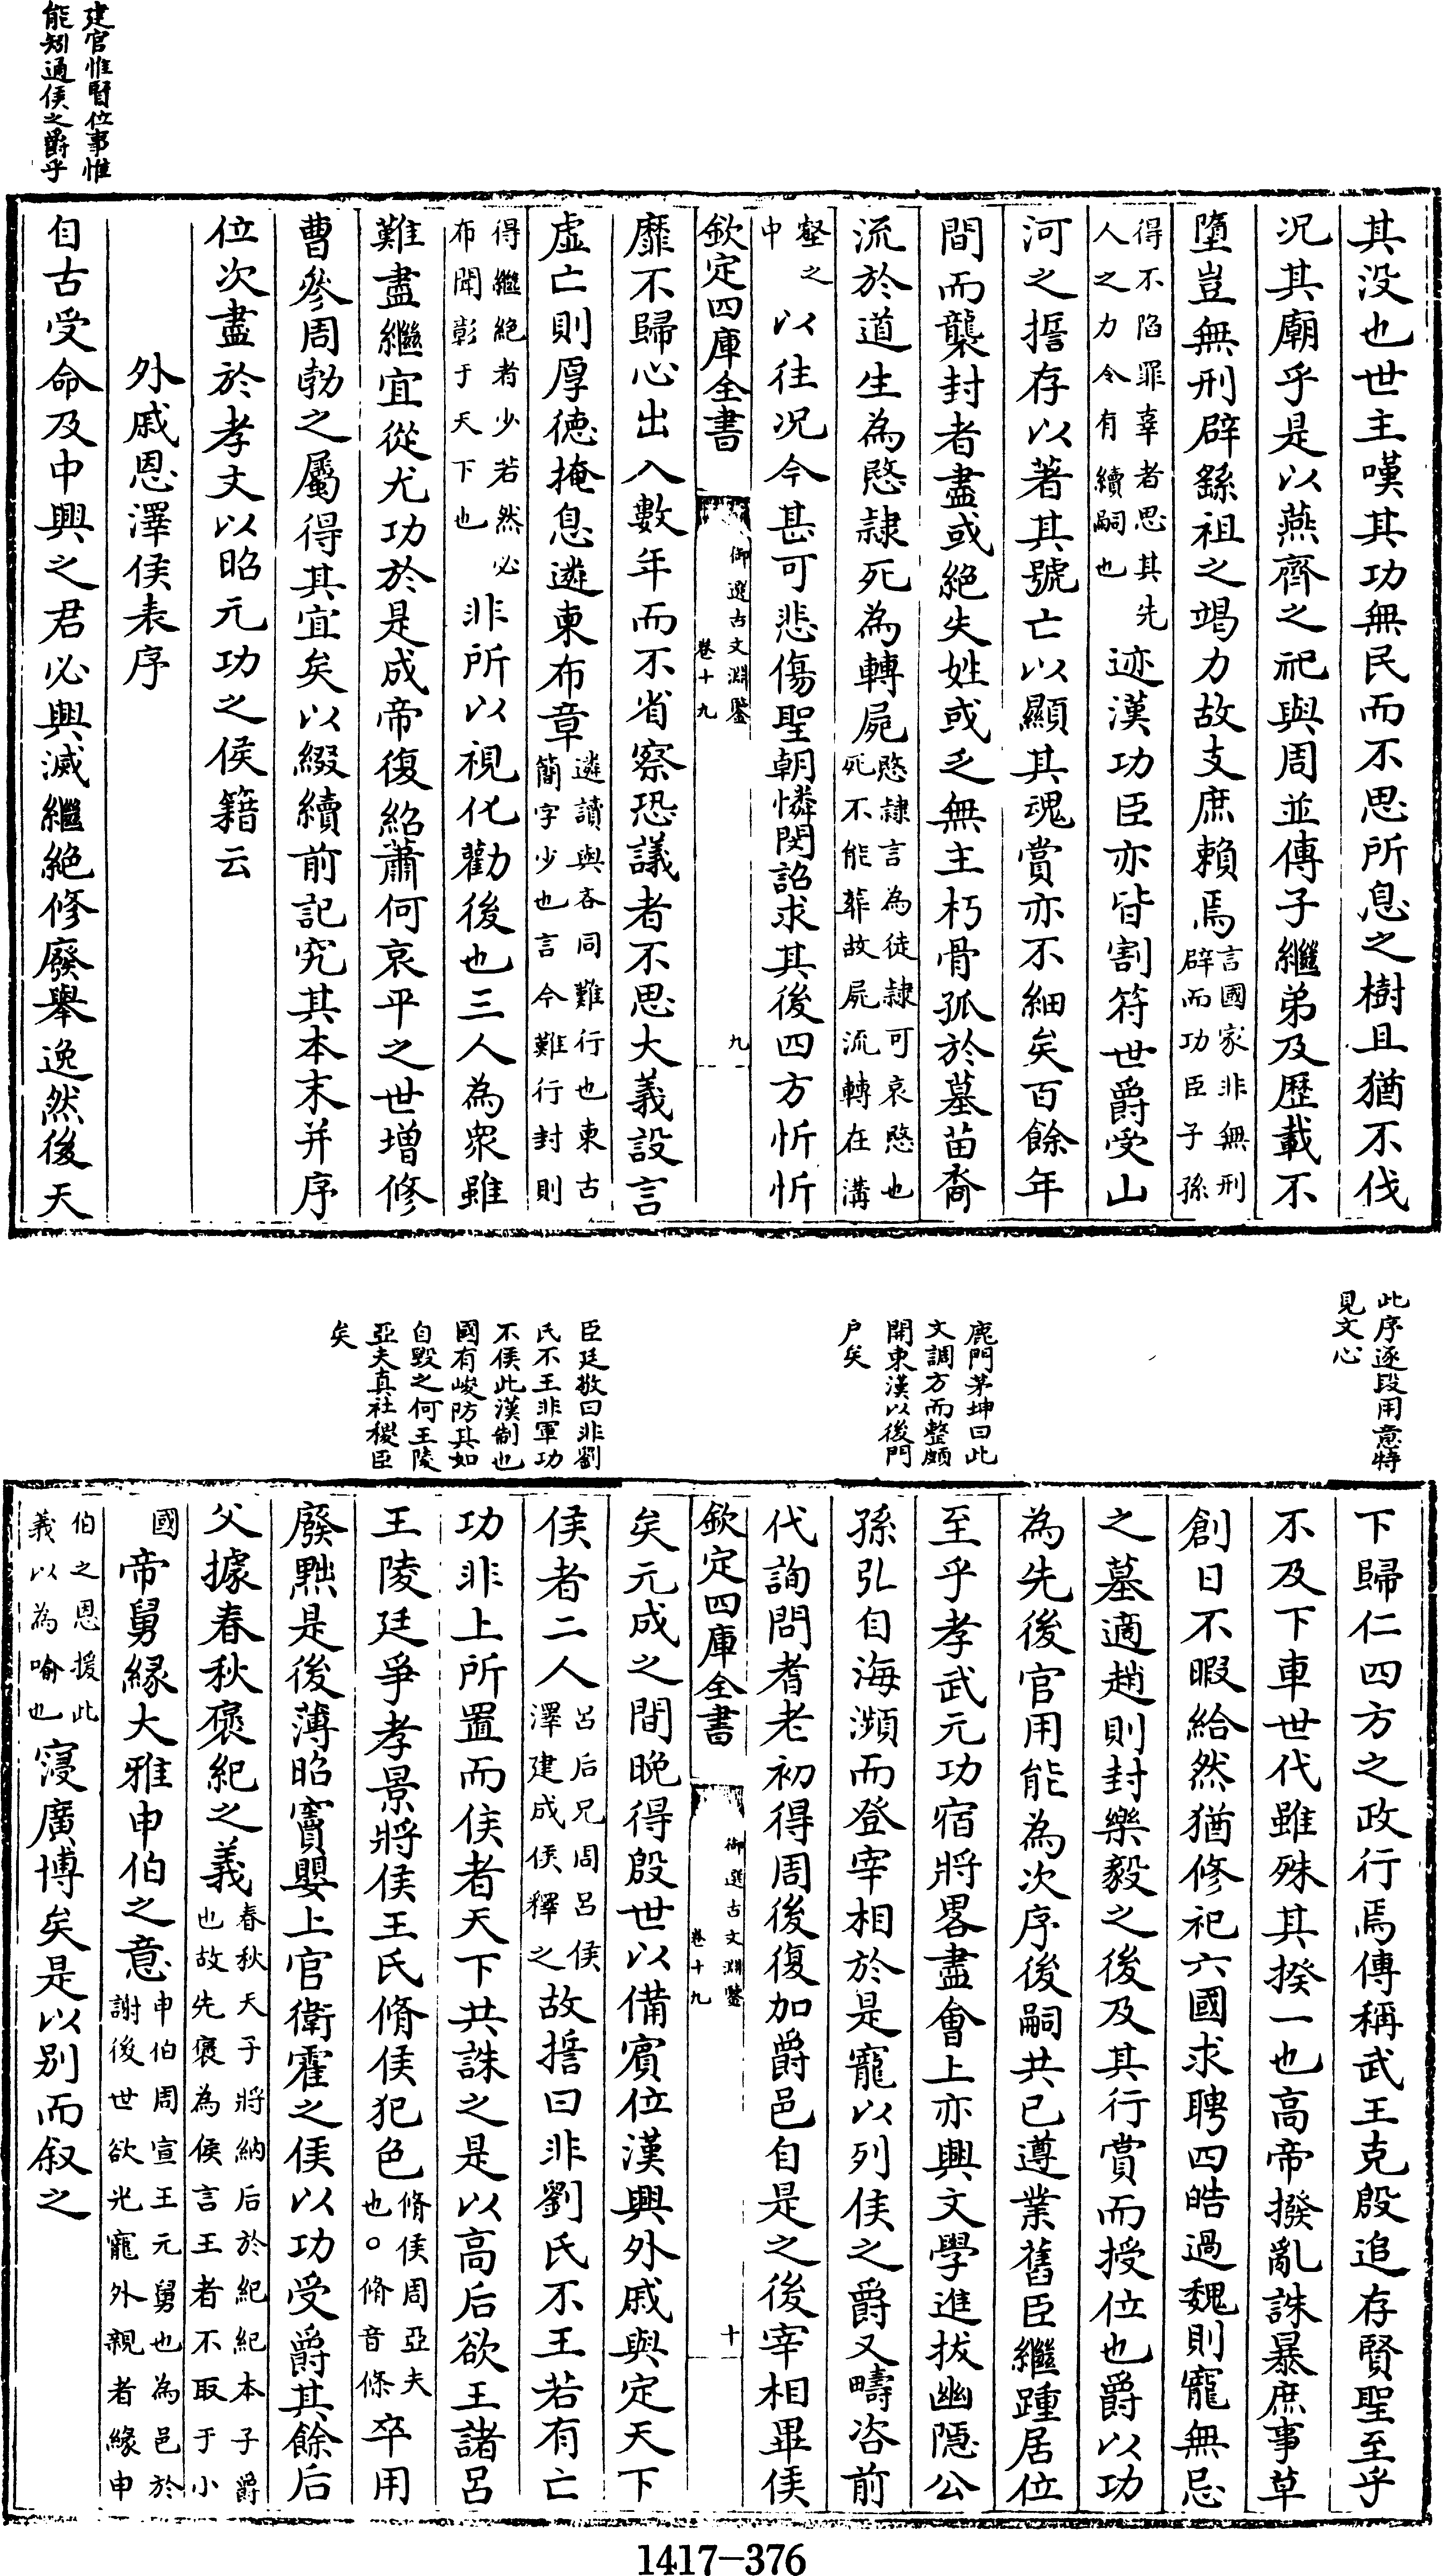 建官惟賢位事惟
能知通侯之爵乎
其没也世主嘆其功無民而不思所息之樹且猶不伐
况其廟乎是以燕齊之祀與周並傳子繼弟及歷載不
墮豈無刑辟繇祖之竭力故支庶賴焉言國家非無刑辟而功臣子孫
得不陷罪辜者思其先人之力令有續嗣也迹漢功臣亦皆割符世爵受山
河之誓存以著其號亡以顯其魂賞亦不細矣百餘年
間而襲封者盡或絕失姓或乏無主朽骨孤於墓苗裔
流於道生為愍隸死為轉屍愍隸言為徒隸可哀愍也死不能葬故屍流轉在溝
壑之中以往况今甚可悲傷聖朝憐閔詔求其後四方忻忻
欽定四庫全書 御選古文淵鑒 卷十九 九
靡不歸心出入數年而不省察恐議者不思大義設言
虛亡則厚德掩息遴柬布章遴讀與吝同難行也柬古簡字少也言今難行封則
得繼絕者少若然必布聞彰于天下也非所以視化勸後也三人為衆雖
難盡繼宜從尤功於是成帝復紹蕭何哀平之世增修
曹參周勃之屬得其宜矣以綴續前記究其本末并序
位次盡於孝文以昭元功之侯籍云
外戚恩澤侯表序
自古受命及中興之君必興滅繼絕修廢舉逸然後天
此序逐段用意特
見文心
鹿門茅坤曰此
文調方而整頗
開東漢以後門
户矣
臣廷敬曰非劉
氏不王非軍功
不侯此漢制也
國有峻防其如
自毀之何王陵
亞夫真社稷臣
矣
下歸仁四方之政行焉傳稱武王克殷追存賢聖至乎
不及下車世代雖殊其揆一也高帝撥亂誅暴庶事草
創日不暇給然猶修祀六國求聘四皓過魏則寵無忌
之墓適趙則封樂毅之後及其行賞而授位也爵以功
為先後官用能為次序後嗣共已遵業舊臣繼踵居位
至乎孝武元功宿將畧盡會上亦興文學進拔幽隱公
孫弘自海瀕而登宰相於是寵以列侯之爵又疇咨前
代詢問耆老初得周後復加爵邑自是之後宰相畢侯
欽定四庫全書 御選古文淵鑒 卷十九 十
矣元成之間晚得殷世以備賓位漢興外戚與定天下
侯者二人呂后兄周呂侯澤建成侯釋之故誓曰非劉氏不王若有亡
功非上所置而侯者天下共誅之是以高后欲王諸呂
王陵廷爭孝景將侯王氏脩侯犯色脩侯周亞夫也。脩音條卒用
廢黜是後薄昭竇嬰上官衛霍之侯以功受爵其餘后
父據春秋褒紀之義春秋天子將納后於紀紀本子爵也故先褒為侯言王者不取于小
國帝舅緣大雅申伯之意申伯周宣王元舅也為邑於謝後世欲光寵外親者緣申
伯之恩援此義以為喻也寖廣博矣是以别而叙之
1417-376